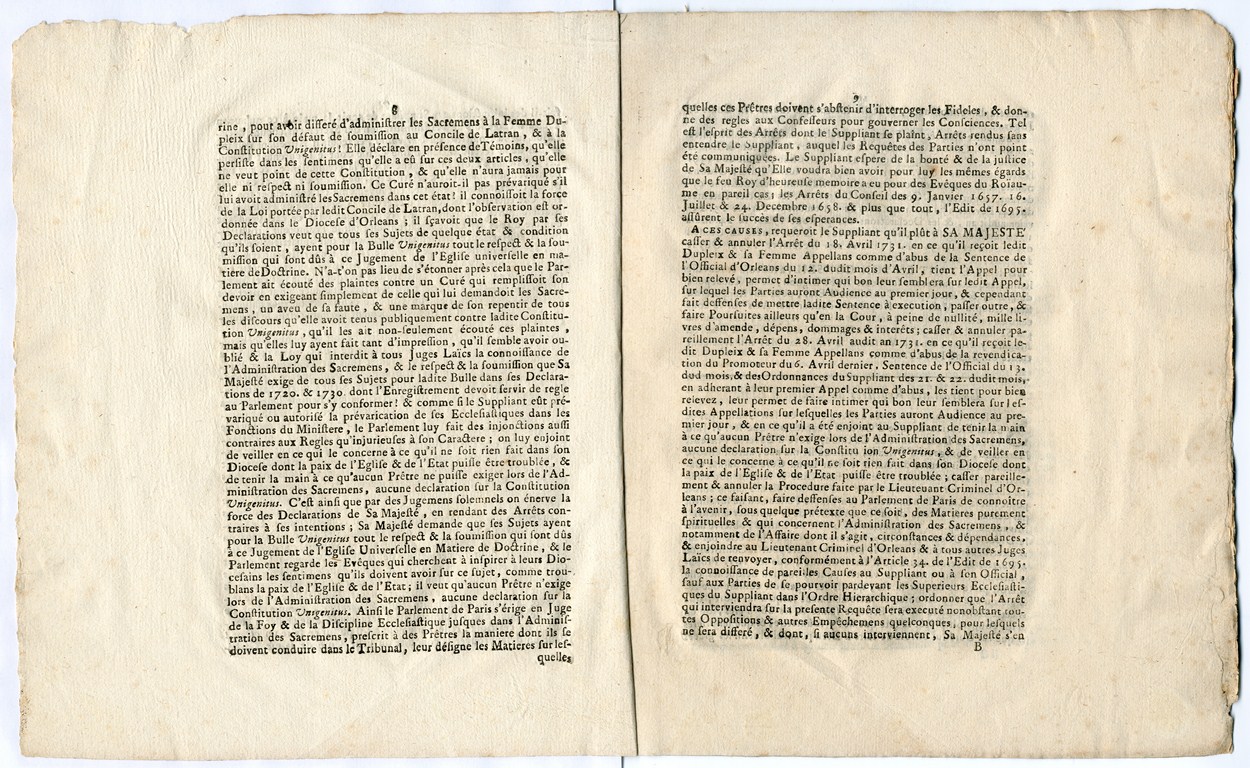 8
rine , pour avoir differé d'administrer les Sacremens à la Femme Du-
pleix sur son défaut de soumission au Concile de Latran, & à la
Constitution Unigenitus! Elle déclare en présence de Témoins, qu'elle
persiste dans les sentimens qu'elle a eû sur ces deux articles , qu'elle
ne veut point de cette Constitution , & qu'elle n'aura jamais pour
elle ni respect ni soumission. Ce Curé n'auroit-il pas prévariqué s'il
lui avoit administré les Sacremens dans cet état! il connoissoit la force
de la Loi portée par ledit Concile de Latran, dont l'observation est or-
donnée dans le Diocese d'Orleans ; il sçavoit que le Roy par ses
Declarations veut que tous ses Sujets de quelque état & condition
qu'ils soient , ayent pour la Bulle Unigenitus tout le respect & la sou-
mission qui sont dûs à ce Jugement de l'Eglise universelle en ma-
tiere de Doctrine. N'a-t'on pas lieu de s'étonner après cela que le Par-
lement ait écouté des plaintes contre un Curé qui remplissoit son
devoir en exigeant simplement de celle qui lui demandoit les Sacre-
mens , un aveu de sa faute , & une marque de son repentir de tous
les discours qu'elle avoit tenus publiquement contre ladite Constitu-
tion Unigenitus , qu'il les ait non-seulement écouté ces plaintes ,
mais qu'elles luy ayent fait tant d'impression , qu'il semble avoir ou-
blié & la Loy qui interdit à tous Juges Laïcs la connoissance de
l'Administration des Sacremens , & le respect & la soumission que Sa
Majesté exige de tous ses Sujets pour ladite Bulle dans ses Declara-
tions de 1720. & 1730 dont l'Enregistrement devoit servir de regle
au Parlement pour s'y conformer! & comme si le Suppliant eût pré-
variqué ou autorisé la prévarication de ses Ecclesiastiques dans les
Fonctions du Ministere , le Parlement luy fait des injonctions aussi
contraires aux Regles qu'injurieuses à son Caractere ; on luy enjoint
de veiller en ce qui le concerne à ce qu'il ne soit rien fait dans son
Diocese dont la paix de l'Eglise & de l'Etat puisse être troublée , &
de tenir la main à ce qu'aucun Prêtre ne puisse exiger lors de l'Ad-
ministration des Sacremens , aucune declaration sur la Constitution
Unigenitus. C'est ainsi que par des Jugemens solemnels on énerve la
force des Declarations de Sa Majesté , en rendant des Arrêts con-
traires à ses intentions ; Sa Majesté demande que ses Sujets ayent
pour la Bulle Unigenitus tout le respect & la soumission qui sont dûs
à ce Jugement de l'Eglise Universelle en Matiere de Doctrine , & le
Parlement regarde les Evêques qui cherchent à inspirer à leurs Dio-
cesains les sentimens qu'ils doivent avoir sur ce sujet, comme trou-
blans la paix de l'Eglise & de l'Etat ; il veut qu'aucun Prêtre n'exige
lors de l'Administration des Sacremens , aucune declaration sur la
Constitution Unigenitus. Ainsi le Parlement de Paris s'érige en Juge
de la Foy & de la Discipline Ecclesiastique jusques dans l'Adminis-
tration des Sacremens, prescrit à des Prêtres la maniere dont ils se
doivent conduire dans le Tribunal, leur désigne les Matieres sur les-
quelles
9
quelles ces Prêtres doivent s'abstenir d'interroger les Fideles , & don-
ne des regles aux Confesseurs pour gouverner les Consciences. Tel
est l'esprit des Arrêts dont le Suppliant se plaînt, Arrêts rendus sans
entendre le Suppliant , auquel les Requêtes des Parties n'ont point
été communiquées. Le Suppliant espere de la bonté & de la justice
de Sa Majesté qu'Elle voudra bien avoir pour luy les mêmes égards
que le feu Roy d'heureuse memoire a eu pour des Evêques du Roïau-
me en pareil cas ; les Arrêts du Conseil des 9. Janvier 1657. 16.
Juillet & 24. Decembre 1658. & plus que tout, l'Edit de 1695.
assûrent le succès de ses esperances.
A CES CAUSES , requeroit le Suppliant qu'il plût à SA MAJESTÉ
casser & annuler l'Arrêt du 18. Avril 1731. en ce qu'il reçoit ledit
Dupleix & sa Femme Appellans comme d'abus de la Sentence de
l'Official d'Orleans du 12. dudit mois d'Avril, tient l'Appel pour
bien relevé, permet d'intimer qui bon leur semblera sur ledit Appel,
sur lequel les Parties auront Audience au premier jour, & cependant
fait deffenses de mettre ladite Sentence à execution, passer outre, &
faire Poursuites ailleurs qu'en la Cour, à peine de nullité, mille li-
vres d'amende, dépens, dommages & interêts ; casser & annuler pa-
reillement l'Arrêt du 28. Avril audit an 1731. en ce qu'il reçoit le-
dit Dupleix & sa Femme Appellans comme d'abus de la revendica-
tion du Promoteur du 6. Avril dernier, Sentence de l'Official du 13.
dud mois, & des Ordonnances du Suppliant des 21. & 22. dudit mois,
en adherant à leur premier Appel comme d'abus, les tient pour bien
relevez, leur permet de faire intimer qui bon leur semblera sur les-
dites Appellations sur lesquelles les Parties auront Audience au pre-
mier jour, & en ce qu'il a été enjoint au Suppliant de tenir la main
à ce qu'aucun Prêtre n'exige lors de l'Administration des Sacremens,
aucune declaration sur la Constitu ion Unigenitus, & de veiller en
ce qui le concerne à ce qu'il ne soit rien fait dans son Diocese dont
la paix de l'Eglise & de l'Etat puisse être troublée ; casser pareille-
ment & annuler la Procedure faite par le Lieutenant Criminel d'Or-
leans ; ce faisant, faire deffenses au Parlement de Paris de connoître
à l'avenir, sous quelque prétexte que ce soit , des Matieres purement
spirituelles & qui concernent l'Administration des Sacremens , &
notamment de l'Affaire dont il s'agit, circonstances & dépendances,
& enjoindre au Lieutenant Criminel d'Orleans & à tous autres Juges
Laïcs de renvoyer, conformément à l'Article 34. de l'Edit de 1695.
la connoissance de pareilles Causes au Suppliant ou à son Official ,
sauf aux Parties de se pourvoir pardevant les Superieurs Ecclesiasti-
ques du Suppliant dans l'Ordre Hierarchique ; ordonner que l'Arrêt
qui interviendra sur la presente Requête sera executé nonobstant tou-
tes Oppositions & autres Empêchemens quelconques, pour lesquels
ne sera differé , & dont, si aucuns interviennent, Sa Majesté s'en
B